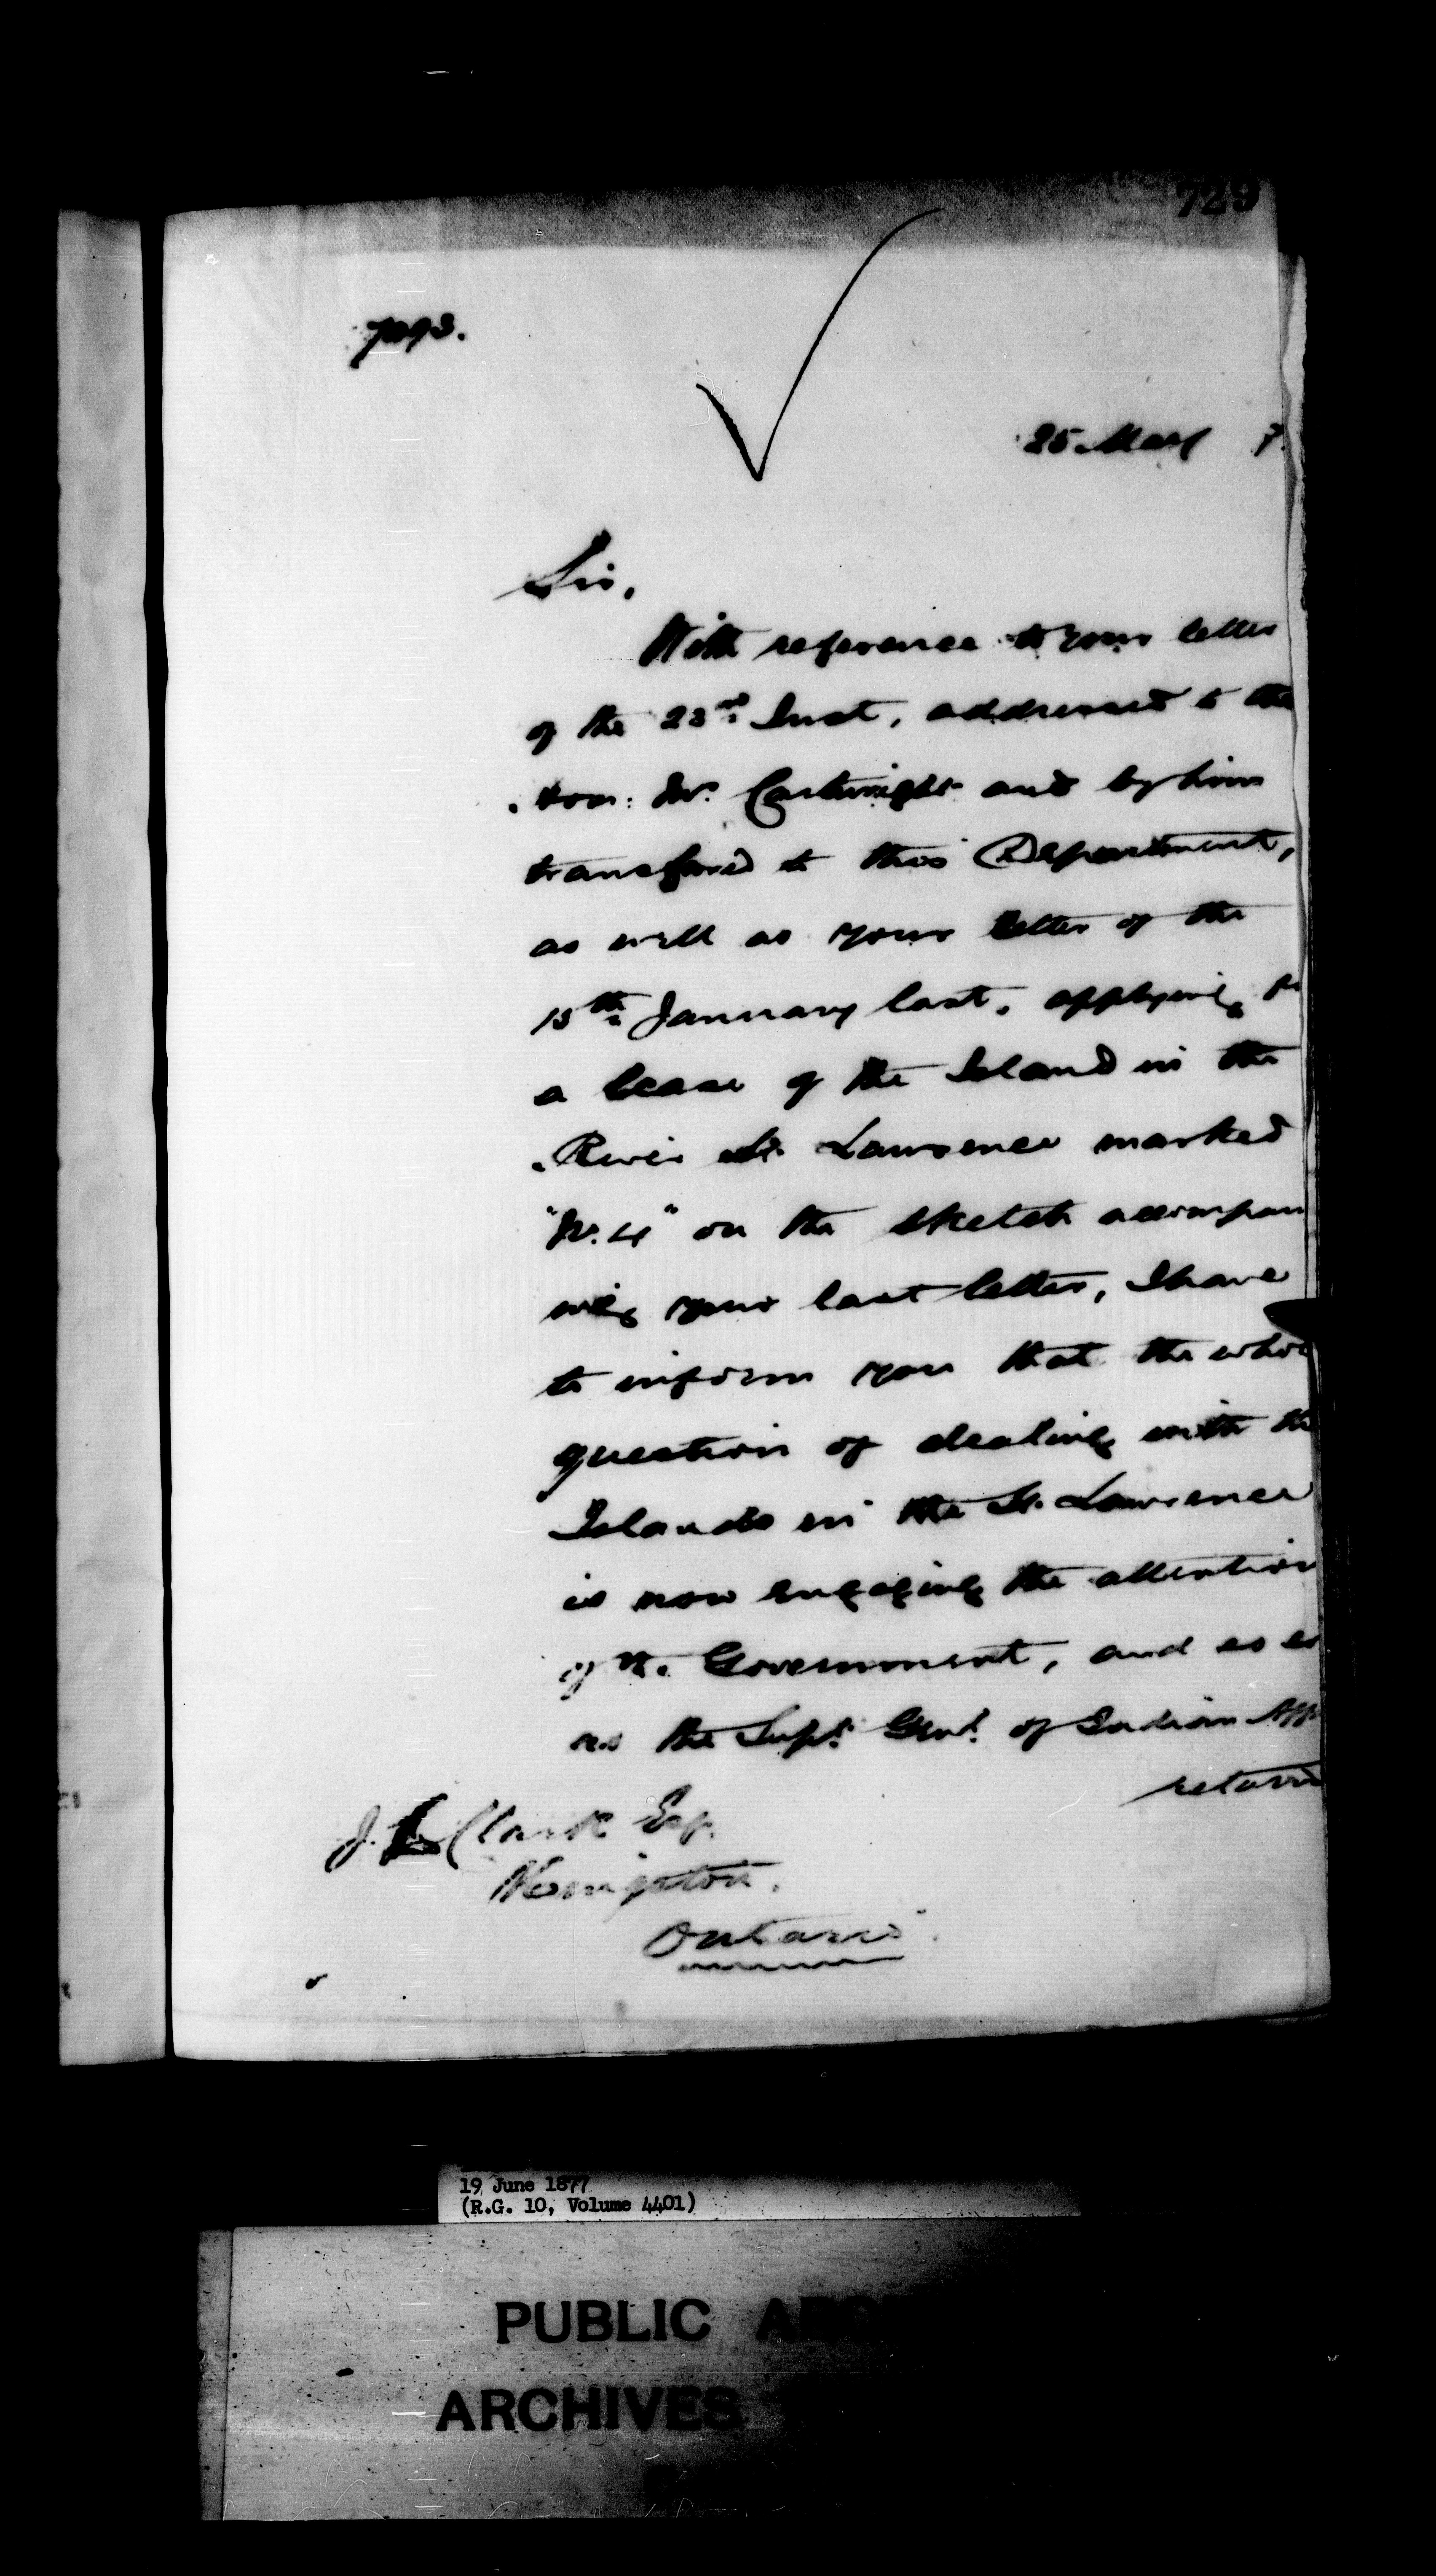 729
7093.
25 May 7
Sir,
With reference to your letter
of the 23rd Inst, addressed to the
Hon: Mr. Cartwright and by him
transferred to this Department,
as well as your letter of the
15th January last, applying fo
a lease of the Island in the
River St. Lawrence marked
"No. 4" on the sketch accompan
ying your last letter, I have
to inform you that the whole
question of dealing with the
Islands in the St. Lawrence
is now engaging the attention
of the Government, and so
as the Supt. Genl. of Indian Aff
return
J. Clark Esq.
Kingston.
Ontario.
19 June 1877
(R.G. 10, Volume 4401)
PUBLIC ARC
ARCHIVES